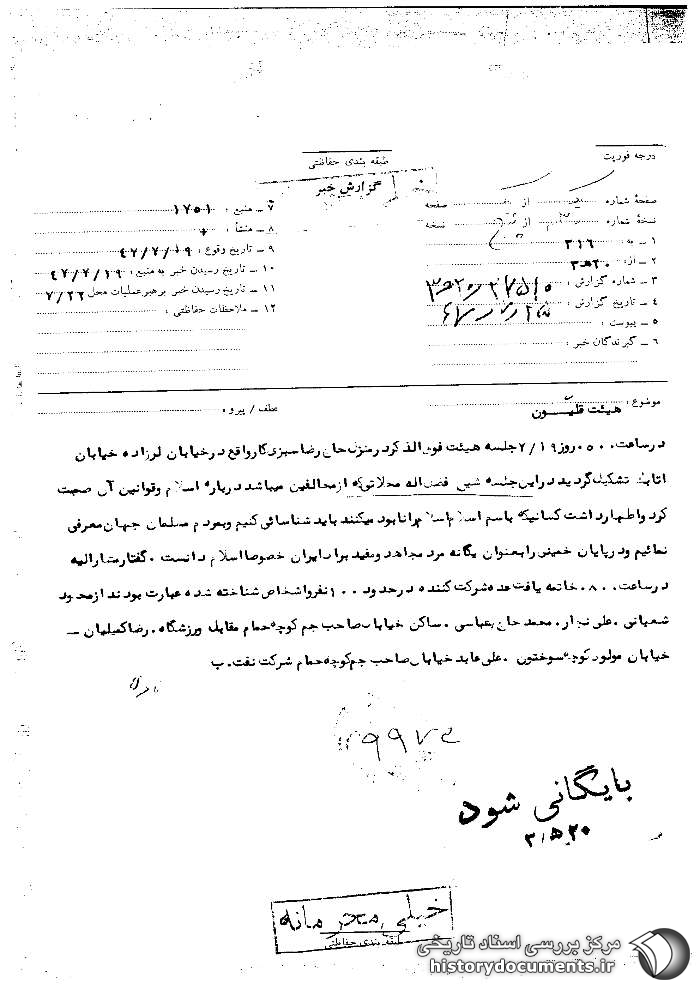 درجه فوریت
طبقه بندی حفاظتی
گزارش خبر
صفحهٔ شماره یک از یک صفحه
نسخهٔ شماره از نسخه
۱ ـ به : ۳۱۶
۲ ـ از: ۲۰ﻫ۳
۳ ـ شماره گزارش :
۴ ـ تاریخ گزارش :
۵ ـ پیوست :
۶ ـ گیرندگان خبر :
۷ ـ منبع : ۱۷۵۱
۸ ـ منشأ :
۹ ـ تاریخ وقوع : ۴۷/۷/۱۹
۱۰ ـ تاریخ رسیدن خبر به منبع : ۴۷/۷/۱۹
۱۱ ـ تاریخ رسیدن خبر برهبرعملیات محل ۷/۲۲
۱۲ ـ ملاحظات حفاظتی :
موضوع : هیئت قلیون
عطف / پیرو:
درساعت ۰۵۰۰ روز ۷/۱۹ جلسه هیئت فوق الذکر در منزل حاج رضا سبزی کار واقع در خیابان لرزاده خیابان
اتابک تشکیل گردید در این جلسه شیخ فضل اله محلاتی که از مخالفین میباشد درباره اسلام وقوانین آن صحبت
کرد واظهارداشت کسانیکه باسم اسلام اسلام را نابود میکنند باید شناسائی کنیم وبمردم مسلمان جهان معرفی
نمائیم ودر پایان خمینی رابعنوان یگانه مرد مجاهد ومفید برای ایران خصوصا اسلام دانست . گفتار مشارالیه
درساعت ۰۸۰۰ خاتمه یافت عده شرکت کننده در حدود ۱۰۰ نفر واشخاص شناخته شده عبارت بودند از محمود
شعبانی . علی نجار . محمد حاج عباسی . ساکن خیابان صاحب جم کوچه حمام مقابل ورزشگاه . رضا کمیلیان ـ
خیابان مولوی کوچه سوختچی . علی عابد خیابان صاحب جم کوچه حمام شرکت نفت . ب
بایگانی شود
۲۰ﻫ۳
خیلی محرمانه
طبقه بندی حفاظتی
مرکز بررسی اسناد تاریخی
historydocuments.ir